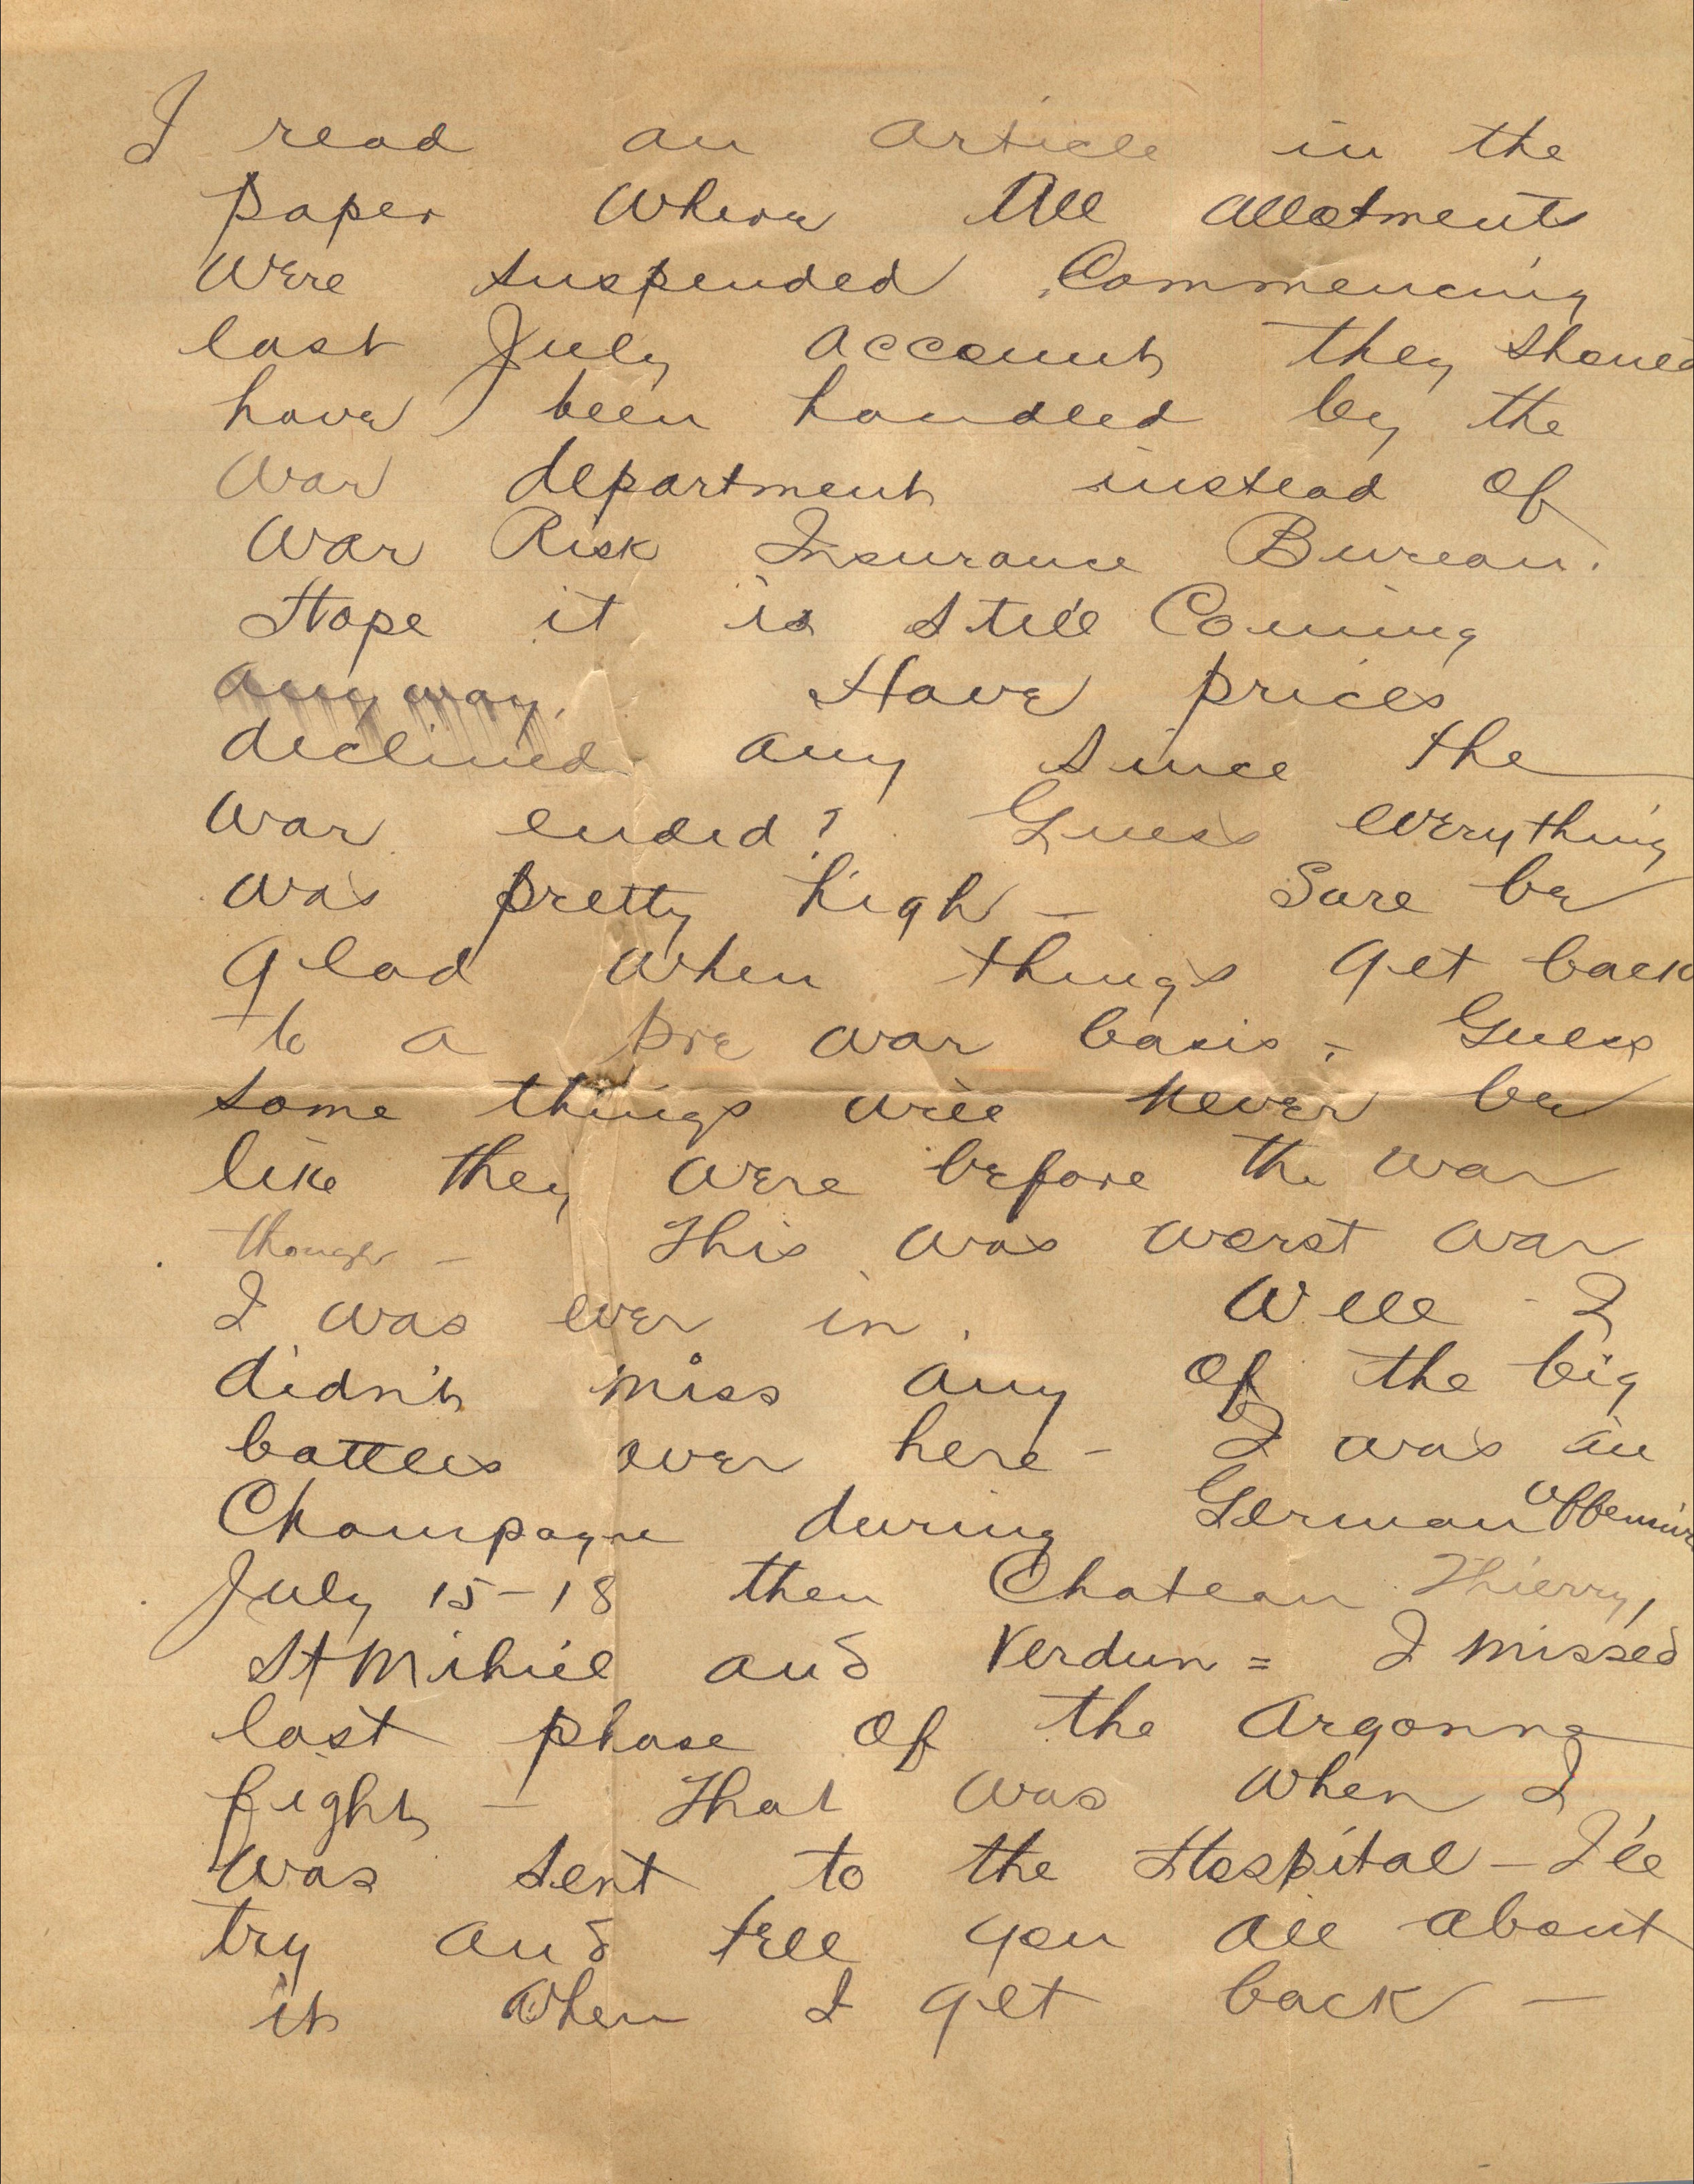 I read an article in the
paper where All allotments
were suspended Commencing
last July account they should
have been handled by the
war department instead of
War Risk Insurance Bureau.
Hope it is still Coming
anyway. Have prices
declined any since the
war ended? Guess everything
was pretty high - Sure be
glad when things get back
to a pre war basis - Guess
some things will never be
like they were before the war
though - This was worst war
I was ever in. Well - I
didn't miss any of the big
battles over here - I was in
Champagne during German Offensive
July 15-18 then Chateau Thierry,
St Mihiel and Verdun = I missed
last phase of the Argonne
fight - That was when I
was sent to the Hospital - I'll
try and tell you all about
it when I get back -